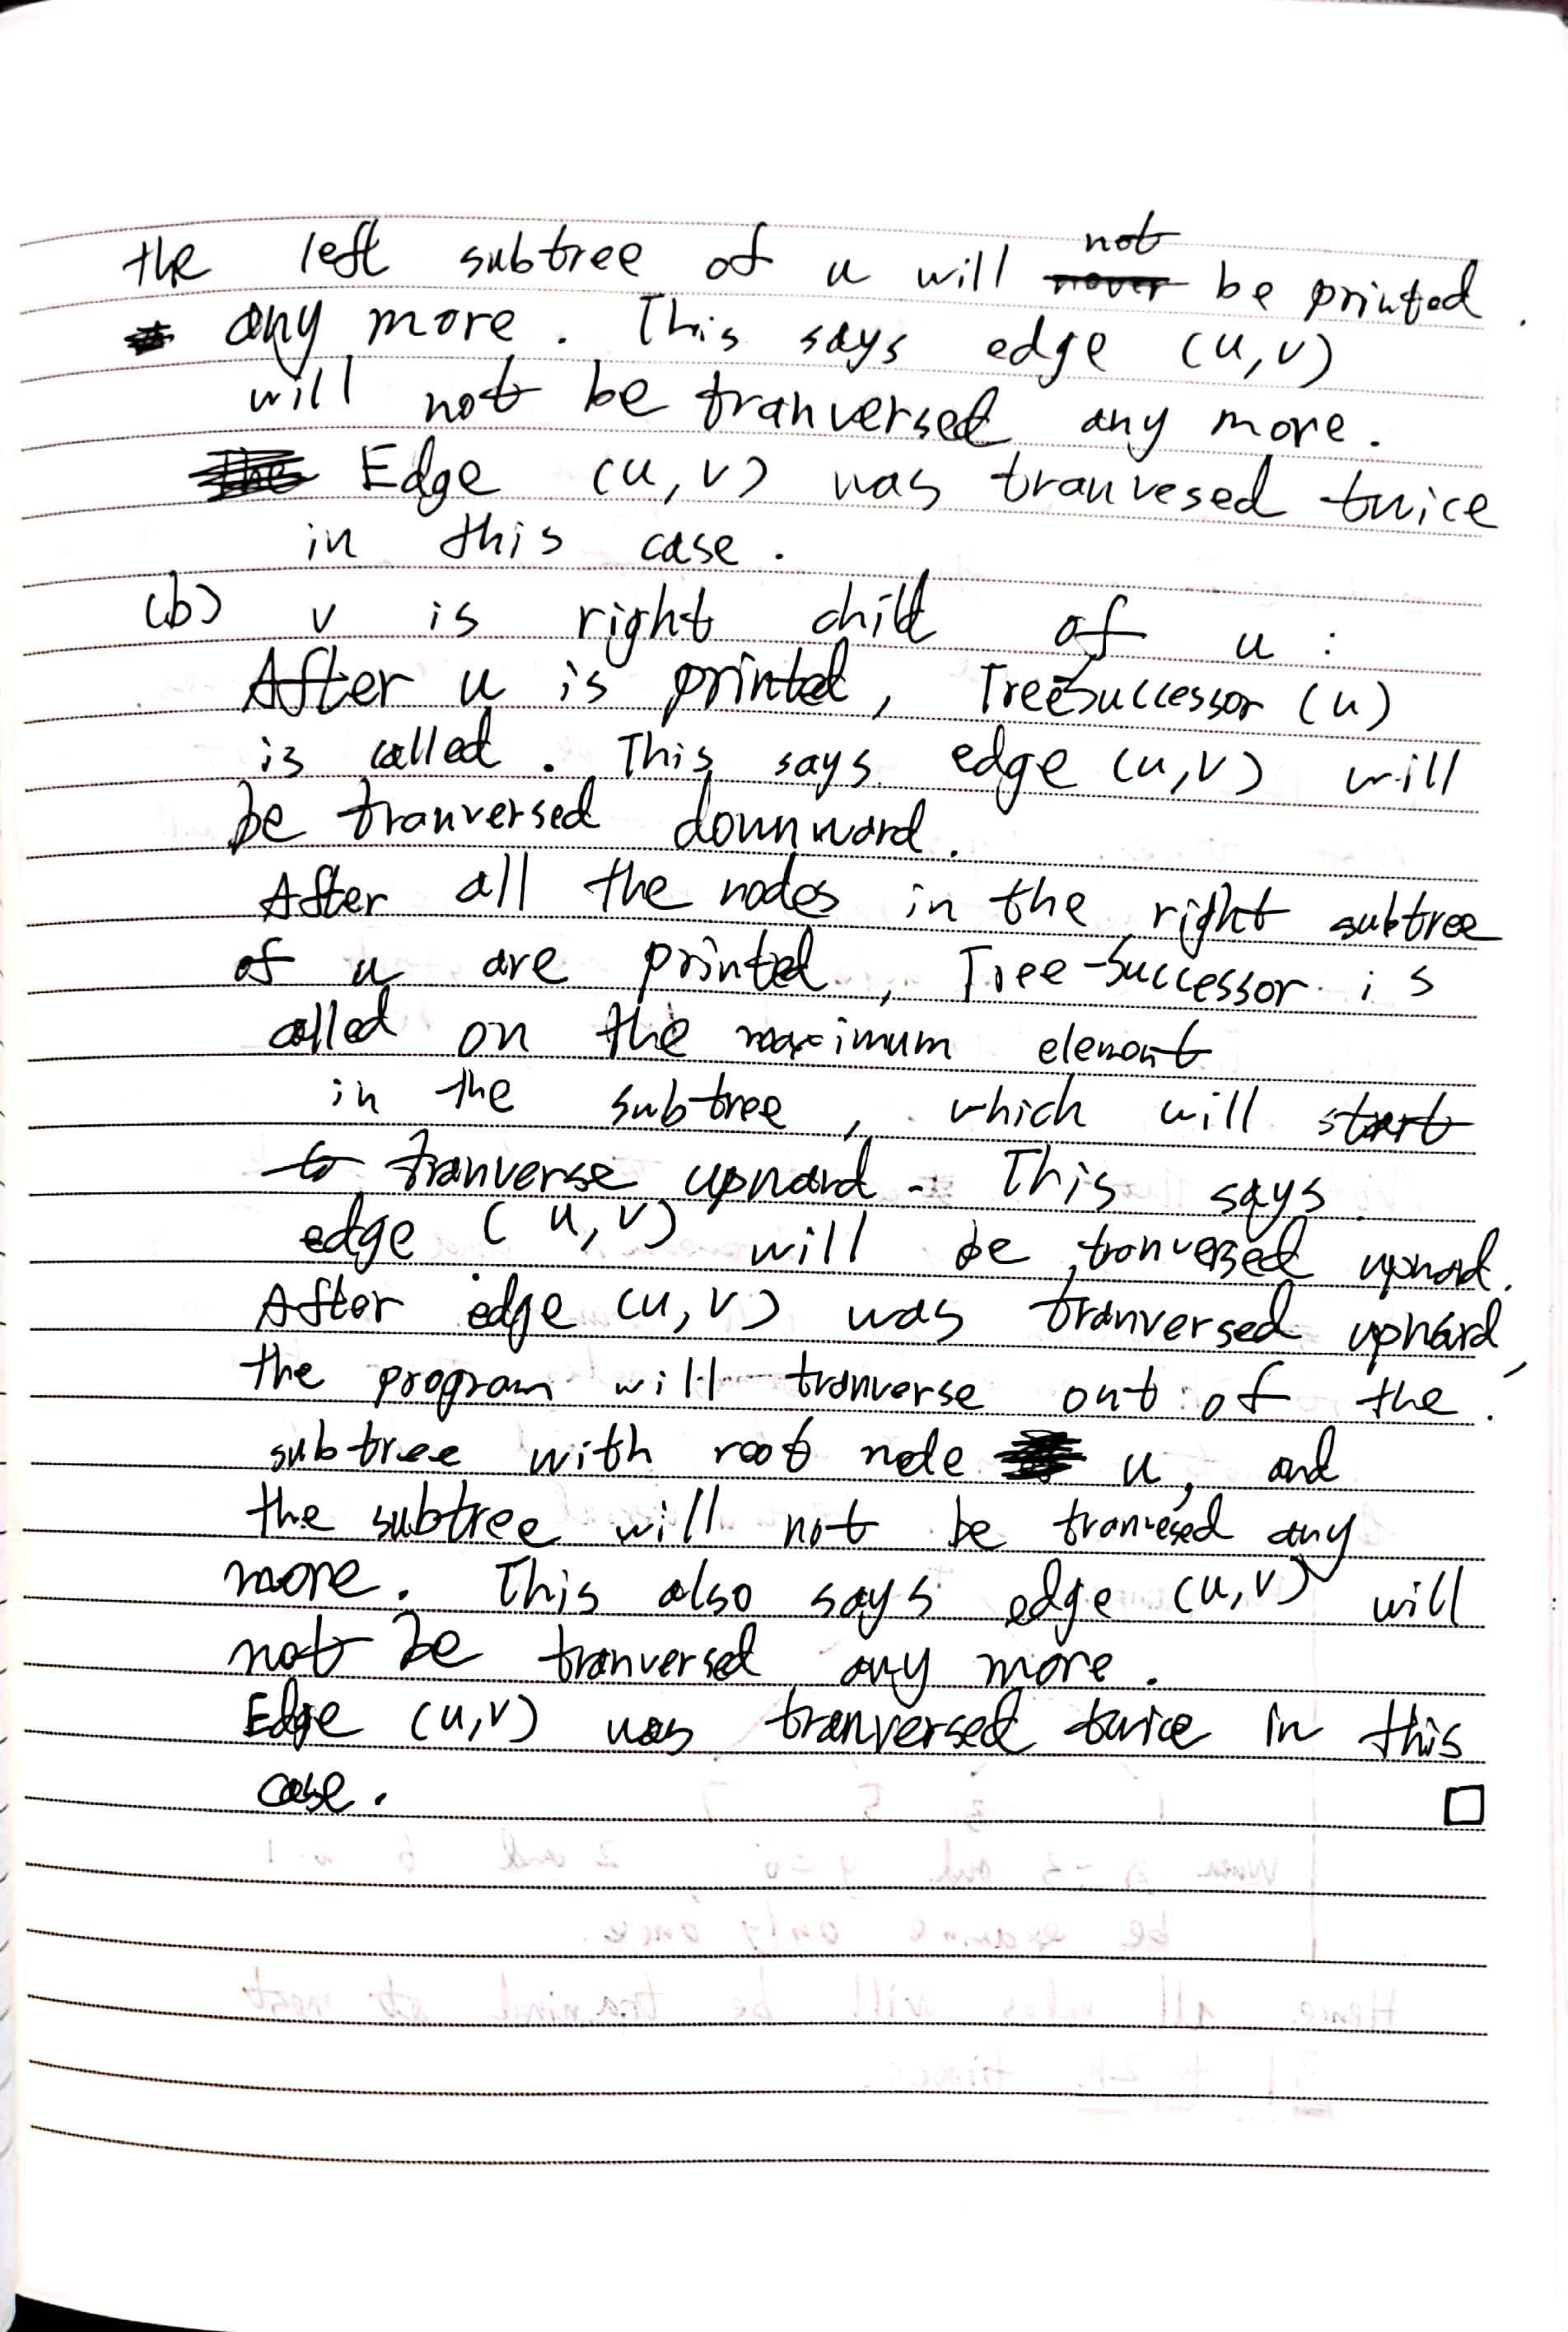 the left subtree of u will not be printed.
any more. This says edge (u,v)
will not be tranversed any more.
Edge (u,v) was tranvesed twice
in this case.
(b) v is right child of u:
After u is printed, TreeSuccessor (u)
is called. This says edge (u,v) will
be tranversed downward.
After all the nodes in the right subtree
of u are printed, Tree-Successor is
called on the maximum element
in the subtree, which will start
to tranverse upward. This says
edge (u,v) will be tranversed upward.
After edge (u,v) was tranversed upward,
the program will tranverse out of the
subtree with root node u, and
the subtree will not be tranvesed any
more. This also says edge (u,v) will
not be tranversed any more.
Edge (u,v) was tranversed twice in this
case. □